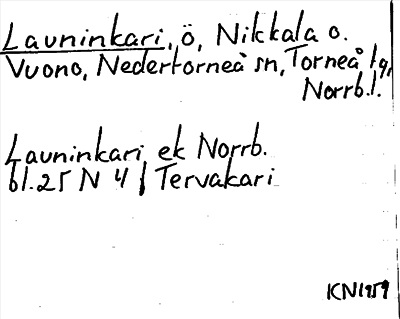 Launinkari, ö, Nikkala o.
Vuono, Nedertorneå sn, Torneå tg,
Norrb.l.
Launinkari ek Norrb.
bl.25 N 4 | Tervakari
KN1959